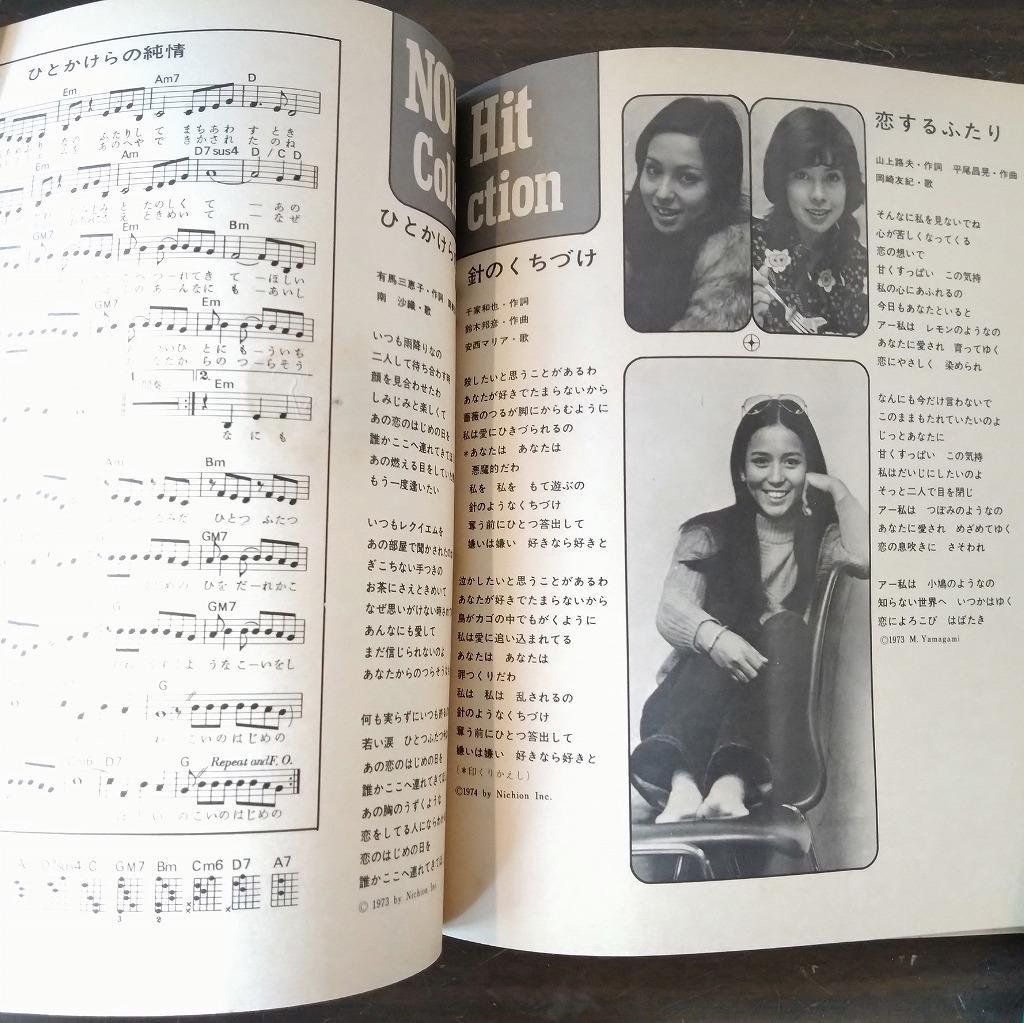 ひとかけらの純情
Em
Am7
D
なの ふたりして まちあわ すとき
ムを あのへやで きかされ たのね
Em
Am
D7sus4 D / C D
たのしく て ―あの
ときめいて ― なぜ
GM7
Em
Bm
つ―れてき て ―ほしい
あ―んなに も ―あいし
GM7
Em
ひとにも―ういち
なたからの つ―らそう
1.
間奏
2.
Em
なにも
Am
Bm
ひとつ ふたつ
GM7
ひを だ―れかこ
G
GM7
うなこ―いをし
G
こいのはじめの
Cm6 D7
G
Repeat and F.O.
のこいのはじめの
D7sus4 C GM7 Bm Cm6 D7 A7
3
2
NOW
Hit
ction
ひとかけら
有馬三恵子・作詞
南 沙織・歌
いつも雨降りなの
二人して待ち合わす時
顔を見合わせたわ
しみじみと楽しくて
あの恋のはじめの日を
誰かここへ連れてきて
あの燃える目をしていた
もう一度逢いたい
いつもレクイエムを
あの部屋で聞かされた
ぎこちない手つきの
お茶にさえときめいて
なぜ思いがけない時
あんなにも愛して
まだ信じられないのよ
あなたからのつらそう
何も実らずにいつも
若い涙 ひとつふたつ
あの恋のはじめの日を
誰かここへ連れてきて
あの胸のうずくような
恋をしてる人になら
恋のはじめの日を
誰かここへ連れてきて
© 1973 by Nichion Inc
針のくちづけ
千家和也・作詞
鈴木邦彦・作曲
安西マリア・歌
殺したいと思うことがあるわ
あなたが好きでたまらないから
薔薇のつるが脚にからむように
私は愛にひきづられるの
*あなたは あなたは
悪魔的だわ
私を 私を もて遊ぶの
針のようなくちづけ
奪う前にひとつ答出して
嫌いは嫌い 好きなら好きと
泣かしたいと思うことがあるわ
あなたが好きでたまらないから
鳥がカゴの中でもがくように
私は愛に追い込まれてる
あなたは あなたは
罪つくりだわ
私は 私は 乱されるの
針のようなくちづけ
奪う前にひとつ答出して
嫌いは嫌い 好きなら好きと
(*印くりかえし)
©1974 by Nichion Inc.
恋するふたり
山上路夫・作詞 平尾昌晃・作曲
岡崎友紀・歌
そんなに私を見ないでね
心が苦しくなってくる
恋の想いで
甘くすっぱい この気持
私の心にあふれるの
今日もあなたといると
アー私は レモンのようなの
あなたに愛され 育ってゆく
恋にやさしく 染められ
なんにも今だけ言わないで
このままもたれていたいのよ
じっとあなたに
甘くすっぱい この気持
私はだいじにしたいのよ
そっと二人で目を閉じ
アー私は つぼみのようなの
あなたに愛され めざめてゆく
恋の息吹きに さそわれ
アー私は 小鳩のようなの
知らない世界へ いつかはゆく
恋によろこび はばたき
©1973 M. Yamagami